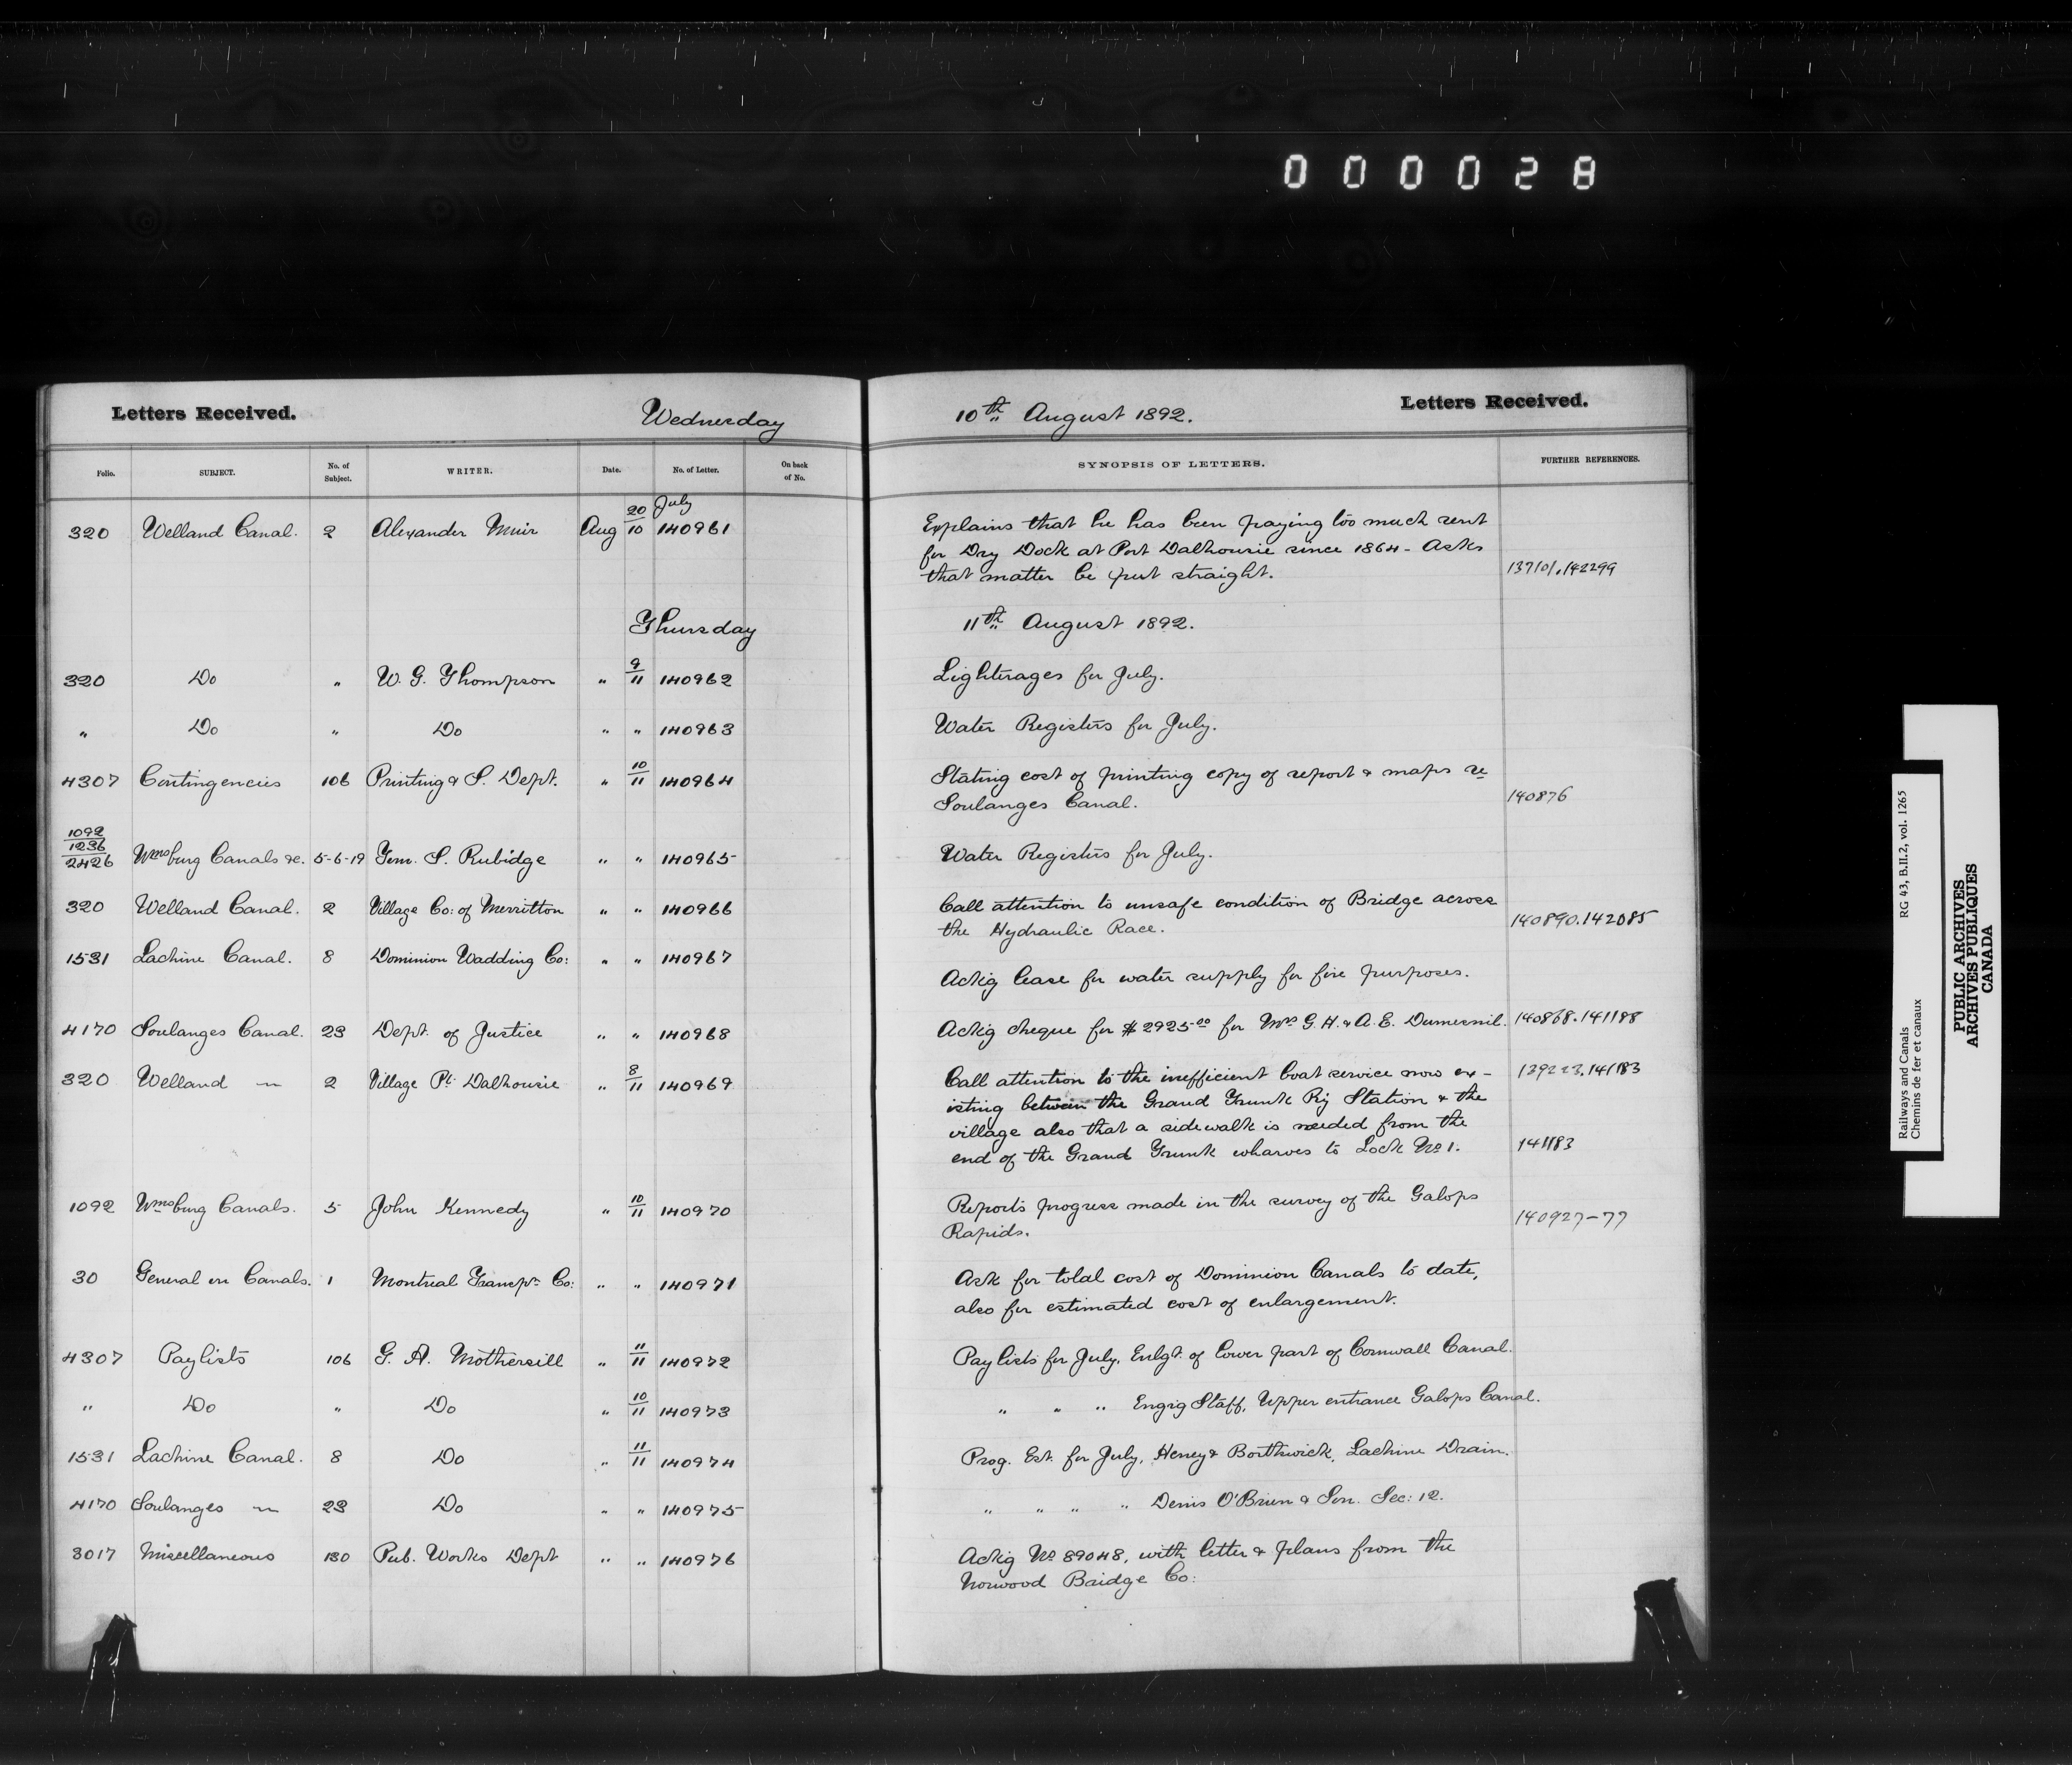 000028
Letters Received. Wednesday 10th August 1892. Letters Received.
Folio. SUBJECT. No. of Subject. WRITER. Date. No. of Letter. On back of No. SYNOPSIS OF LETTERS. FURTHER REFERENCES.
320 Welland Canal. 2 Alexander Muir Aug 20/10 July 140961 Explains that he has been paying too much rent
for Dry Dock at Port Dalhousie since 1864 - Asks
that matter be put straight. 137101.142299
Thursday 11th August 1892.
320 Do " W. G. Thompson " 9/11 140962 Lighterages for July.
" Do " Do " " 140963 Water Registers for July.
4307 Contingencies 106 Printing & S. Dept. " 10/11 140964 Stating cost of printing copy of report & maps re
Soulanges Canal. 140876
1092
1236
2426 Wmsburg Canals &c. 5-6-19 Tom. S. Rubidge " " 140965 Water Registers for July.
320 Welland Canal. 2 Village Co: of Merritton " " 140966 Call attention to unsafe condition of Bridge across
the Hydraulic Race. 140890.142085
1531 Lachine Canal. 8 Dominion Wadding Co: " " 140967 Ackig lease for water supply for fire purposes.
4170 Soulanges Canal. 23 Dept. of Justice " " 140968 Ackig cheque for $2925.00 for Mrs G. H. & A. E. Dumesnil. 140868.141188
320 Welland 〃 2 Village Pt. Dalhousie " 8/11 140969 Call attention to the inefficient boat service now ex-
isting between the Grand Trunk Ry Station & the
village also that a sidewalk is needed from the
end of the Grand Trunk wharves to Lock No 1. 141183
1092 Wmsburg Canals. 5 John Kennedy " 10/11 140970 Reports progress made in the survey of the Galops
Rapids. 140927-77
30 General on Canals. 1 Montreal Transpn Co: " " 140971 Ask for total cost of Dominion Canals to date,
also for estimated cost of enlargement.
4307 Paylists 106 G. A. Mothersill " 11/11 140972 Paylists for July, Enlgt. of lower part of Cornwall Canal.
" Do " Do " 10/11 140973 " " " Engig Staff, Upper entrance Galops Canal.
1531 Lachine Canal. 8 Do " 11/11 140974 Prog. Est. for July, Heney & Borthwick, Lachine Drain.
4170 Soulanges 〃 23 Do " " 140975 " " " " Denis O'Brien & Son. Sec: 12.
3017 Miscellaneous 130 Pub. Works Dept " " 140976 Ackig No 89048, with letter & plans from the
Norwood Bridge Co:
Railways and Canals RG 43, B.II.2, vol. 1265
Chemins de fer et canaux
PUBLIC ARCHIVES
ARCHIVES PUBLIQUES
CANADA